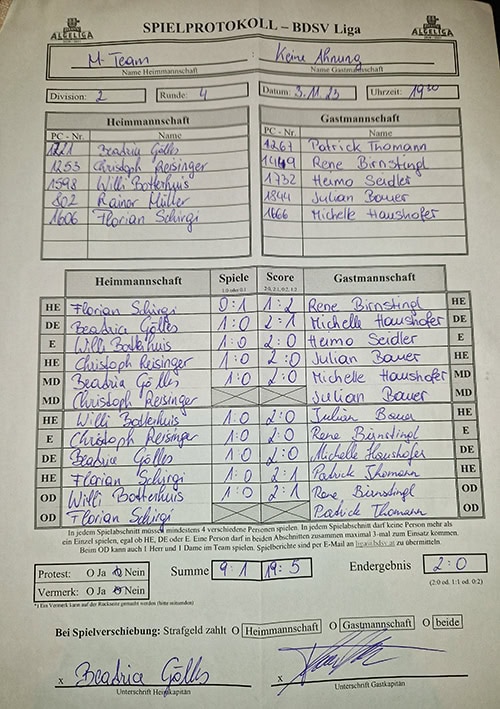 ALGELIGA
SPIELPROTOKOLL – BDSV Liga
ALGELIGA
M-Team : Keine Ahnung
Name Heimmannschaft Name Gastmannschaft
Division: 2 Runde: 4 Datum: 3.11.23 Uhrzeit: 19³⁰
Heimmannschaft Gastmannschaft
PC - Nr. Name PC - Nr. Name
1221 Beatrix Gölles 1267 Patrick Thomann
1253 Christoph Reisinger 1449 Rene Birnstingl
1598 Willi Botterhuis 1732 Heimo Seidler
802 Rainer Müller 1844 Julian Bauer
1606 Florian Schirgi 1666 Michelle Haushofer
Heimmannschaft Spiele Score Gastmannschaft
1:0 oder 0:1 2:0, 2:1, 0:2, 1:2
HE Florian Schirgi 0:1 1:2 Rene Birnstingl HE
DE Beatrix Gölles 1:0 2:1 Michelle Haushofer DE
E Willi Botterhuis 1:0 2:0 Heimo Seidler E
HE Christoph Reisinger 1:0 2:0 Julian Bauer HE
MD Beatrix Gölles 1:0 2:0 Michelle Haushofer MD
MD Christoph Reisinger Julian Bauer MD
HE Willi Botterhuis 1:0 2:0 Julian Bauer HE
E Christoph Reisinger 1:0 2:0 Rene Birnstingl E
DE Beatrix Gölles 1:0 2:0 Michelle Haushofer DE
HE Florian Schirgi 1:0 2:1 Patrick Thomann HE
OD Willi Botterhuis 1:0 2:1 Rene Birnstingl OD
OD Florian Schirgi Patrick Thomann OD
In jedem Spielabschnitt müssen mindestens 4 verschiedene Personen spielen. In jedem Spielabschnitt darf keine Person mehr als
ein Einzel spielen, egal ob HE, DE oder E. Eine Person darf in beiden Abschnitten zusammen maximal 3-mal zum Einsatz kommen.
Beim OD kann auch 1 Herr und 1 Dame im Team spielen. Spielberichte sind per E-Mail an liga@bdsv.at zu übermitteln.
Protest: O Ja O Nein Summe 9:1 19:5 Endergebnis 2:0
Vermerk: O Ja O Nein (2:0 od. 1:1 od. 0:2)
*) Ein Vermerk kann auf der Rückseite gemacht werden (bitte mitsenden)
Bei Spielverschiebung: Strafgeld zahlt O Heimmannschaft O Gastmannschaft O beide
x Beatrix Gölles x
Unterschrift Heimkapitän Unterschrift Gastkapitän